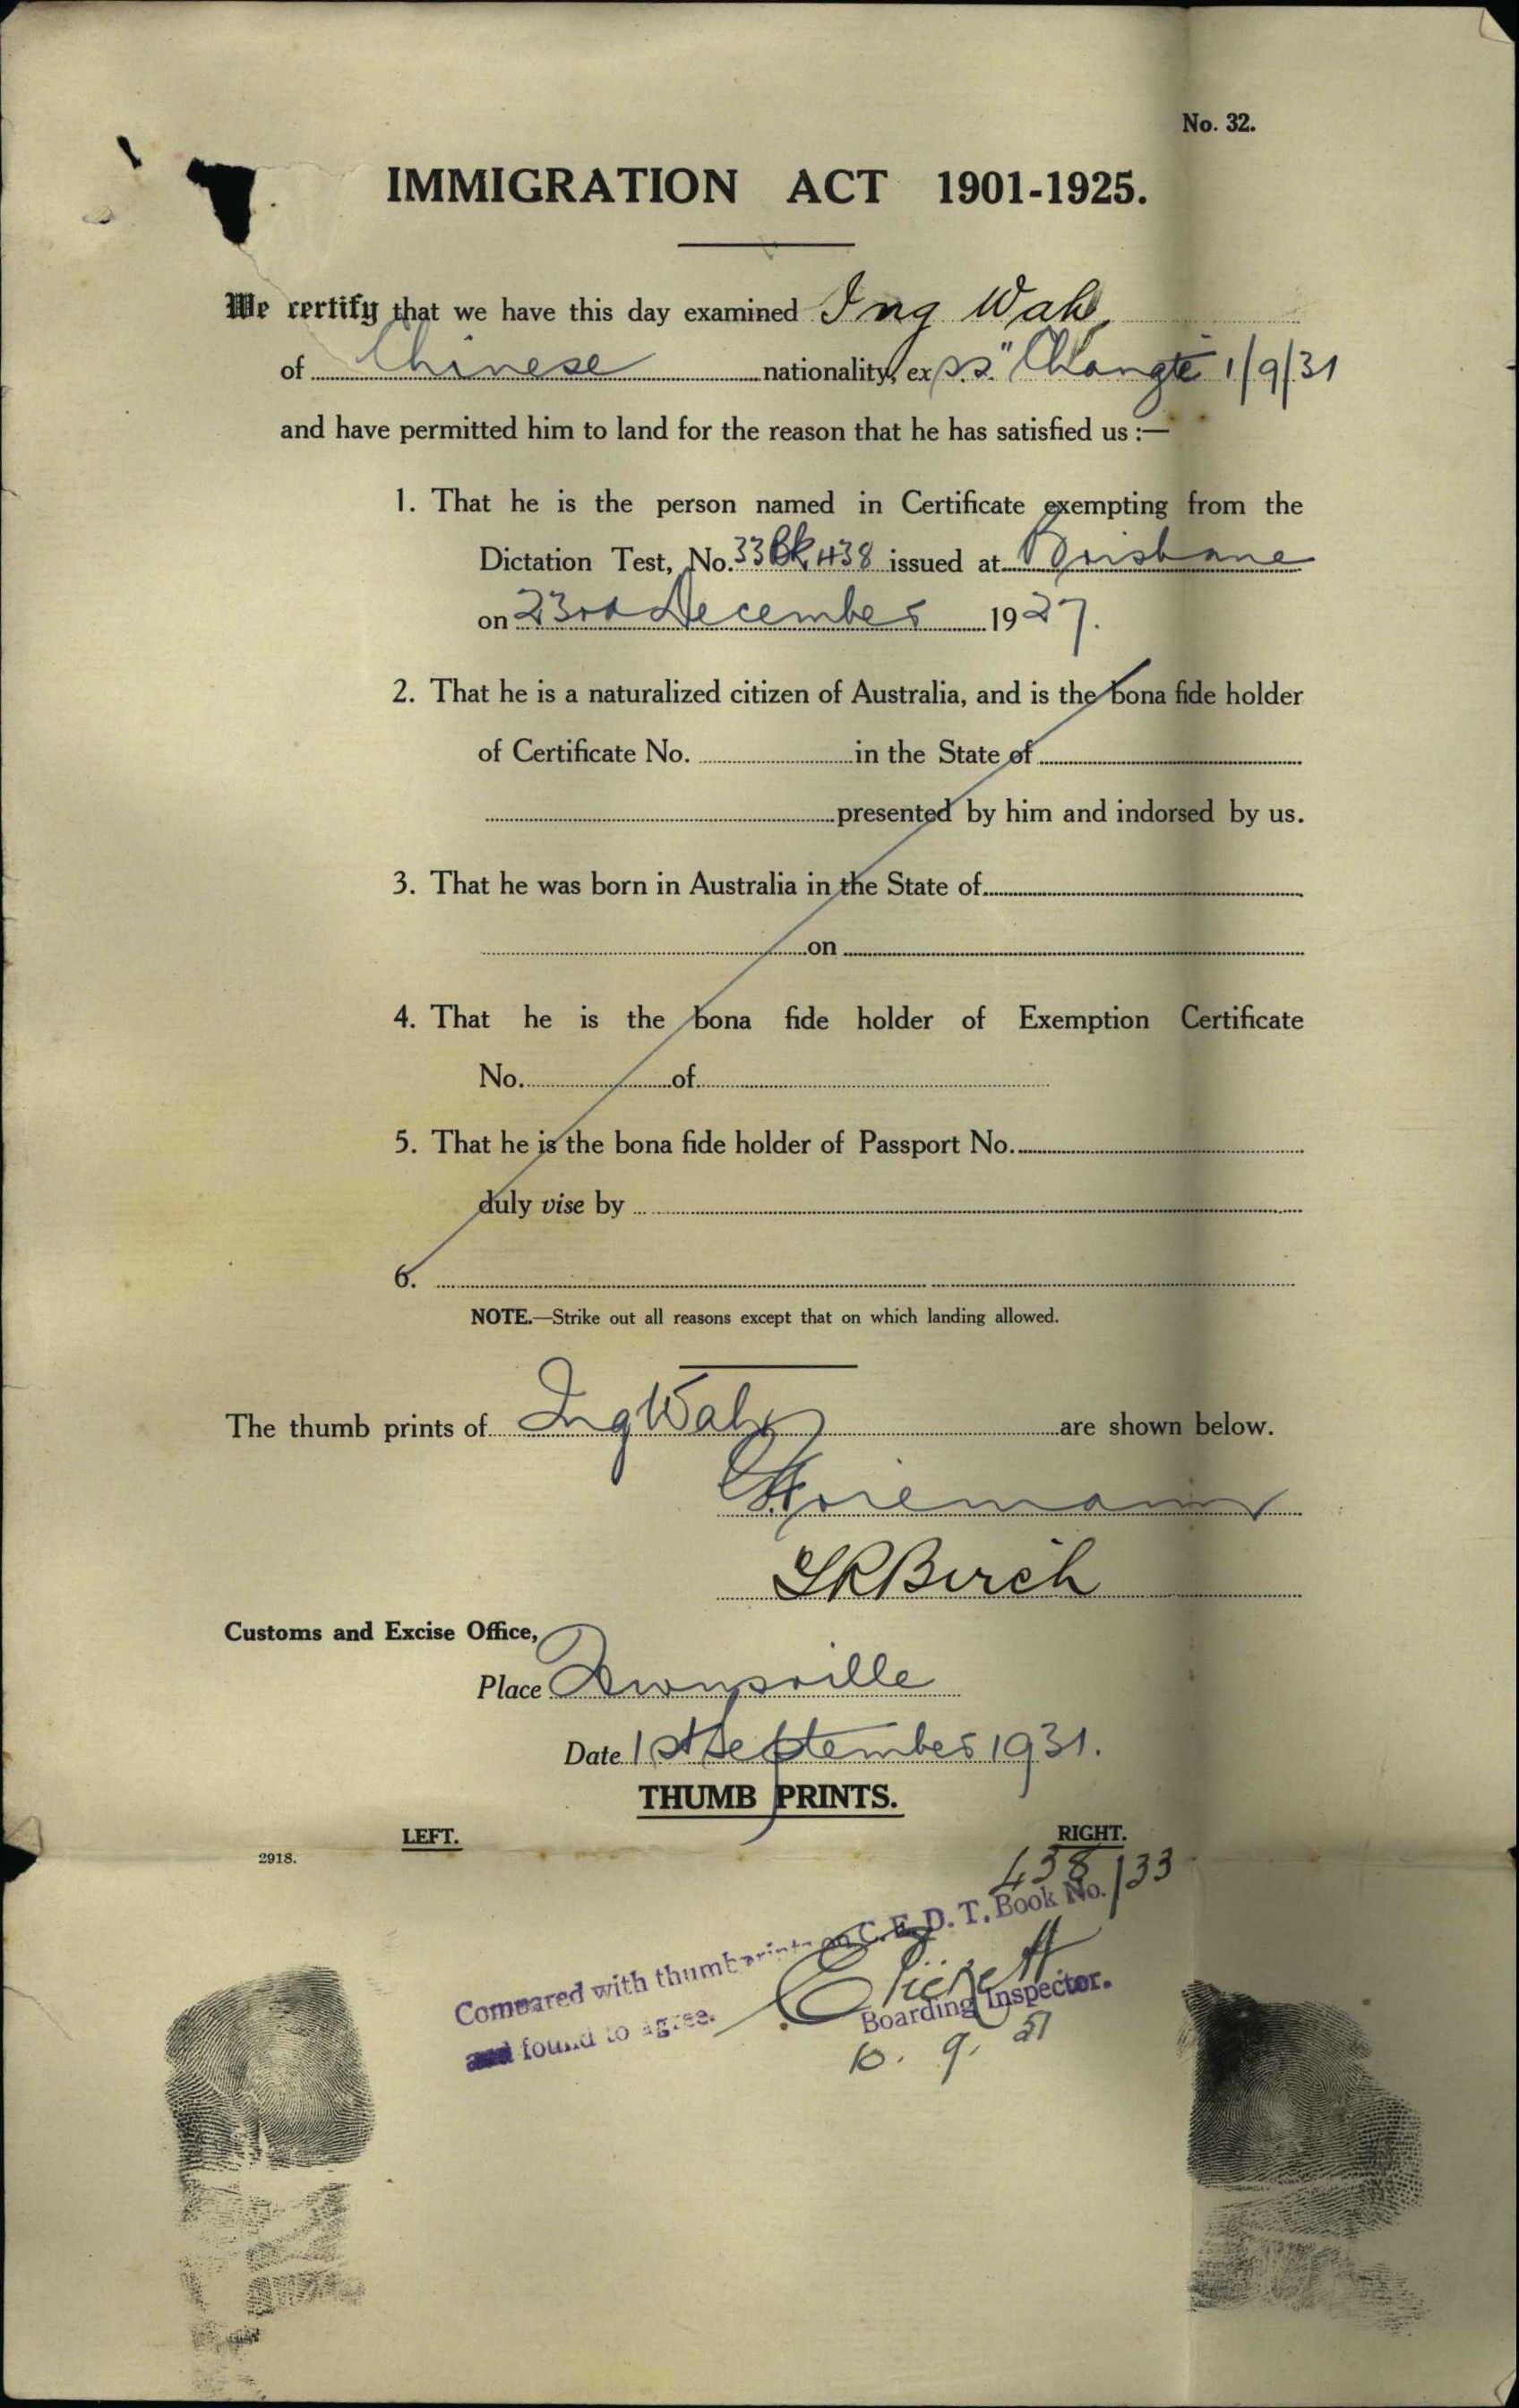 No. 32.
IMMIGRATION ACT 1901-1925.
We certify that we have this day examined Ing Wah
of Chinese nationality, ex s.s. "Changte 1/9/31
and have permitted him to land for the reason that he has satisfied us :—
1. That he is the person named in Certificate exempting from the
Dictation Test, No. 33 Bk 438 issued at Brisbane
on 23rd December 1927.
2. That he is a naturalized citizen of Australia, and is the bona fide holder
of Certificate No. in the State of
presented by him and indorsed by us.
3. That he was born in Australia in the State of
on
4. That he is the bona fide holder of Exemption Certificate
No. of
5. That he is the bona fide holder of Passport No.
duly vise by
6.
NOTE.—Strike out all reasons except that on which landing allowed.
The thumb prints of Ing Wah are shown below.
Birch
Customs and Excise Office,
Place Townsville
Date 1st September 1931.
THUMB PRINTS.
LEFT. RIGHT.
2918.
438/33
Compared with thumbprints on C.E.D.T. Book No.
and found to agree.
Boarding Inspector.
10. 9. 31